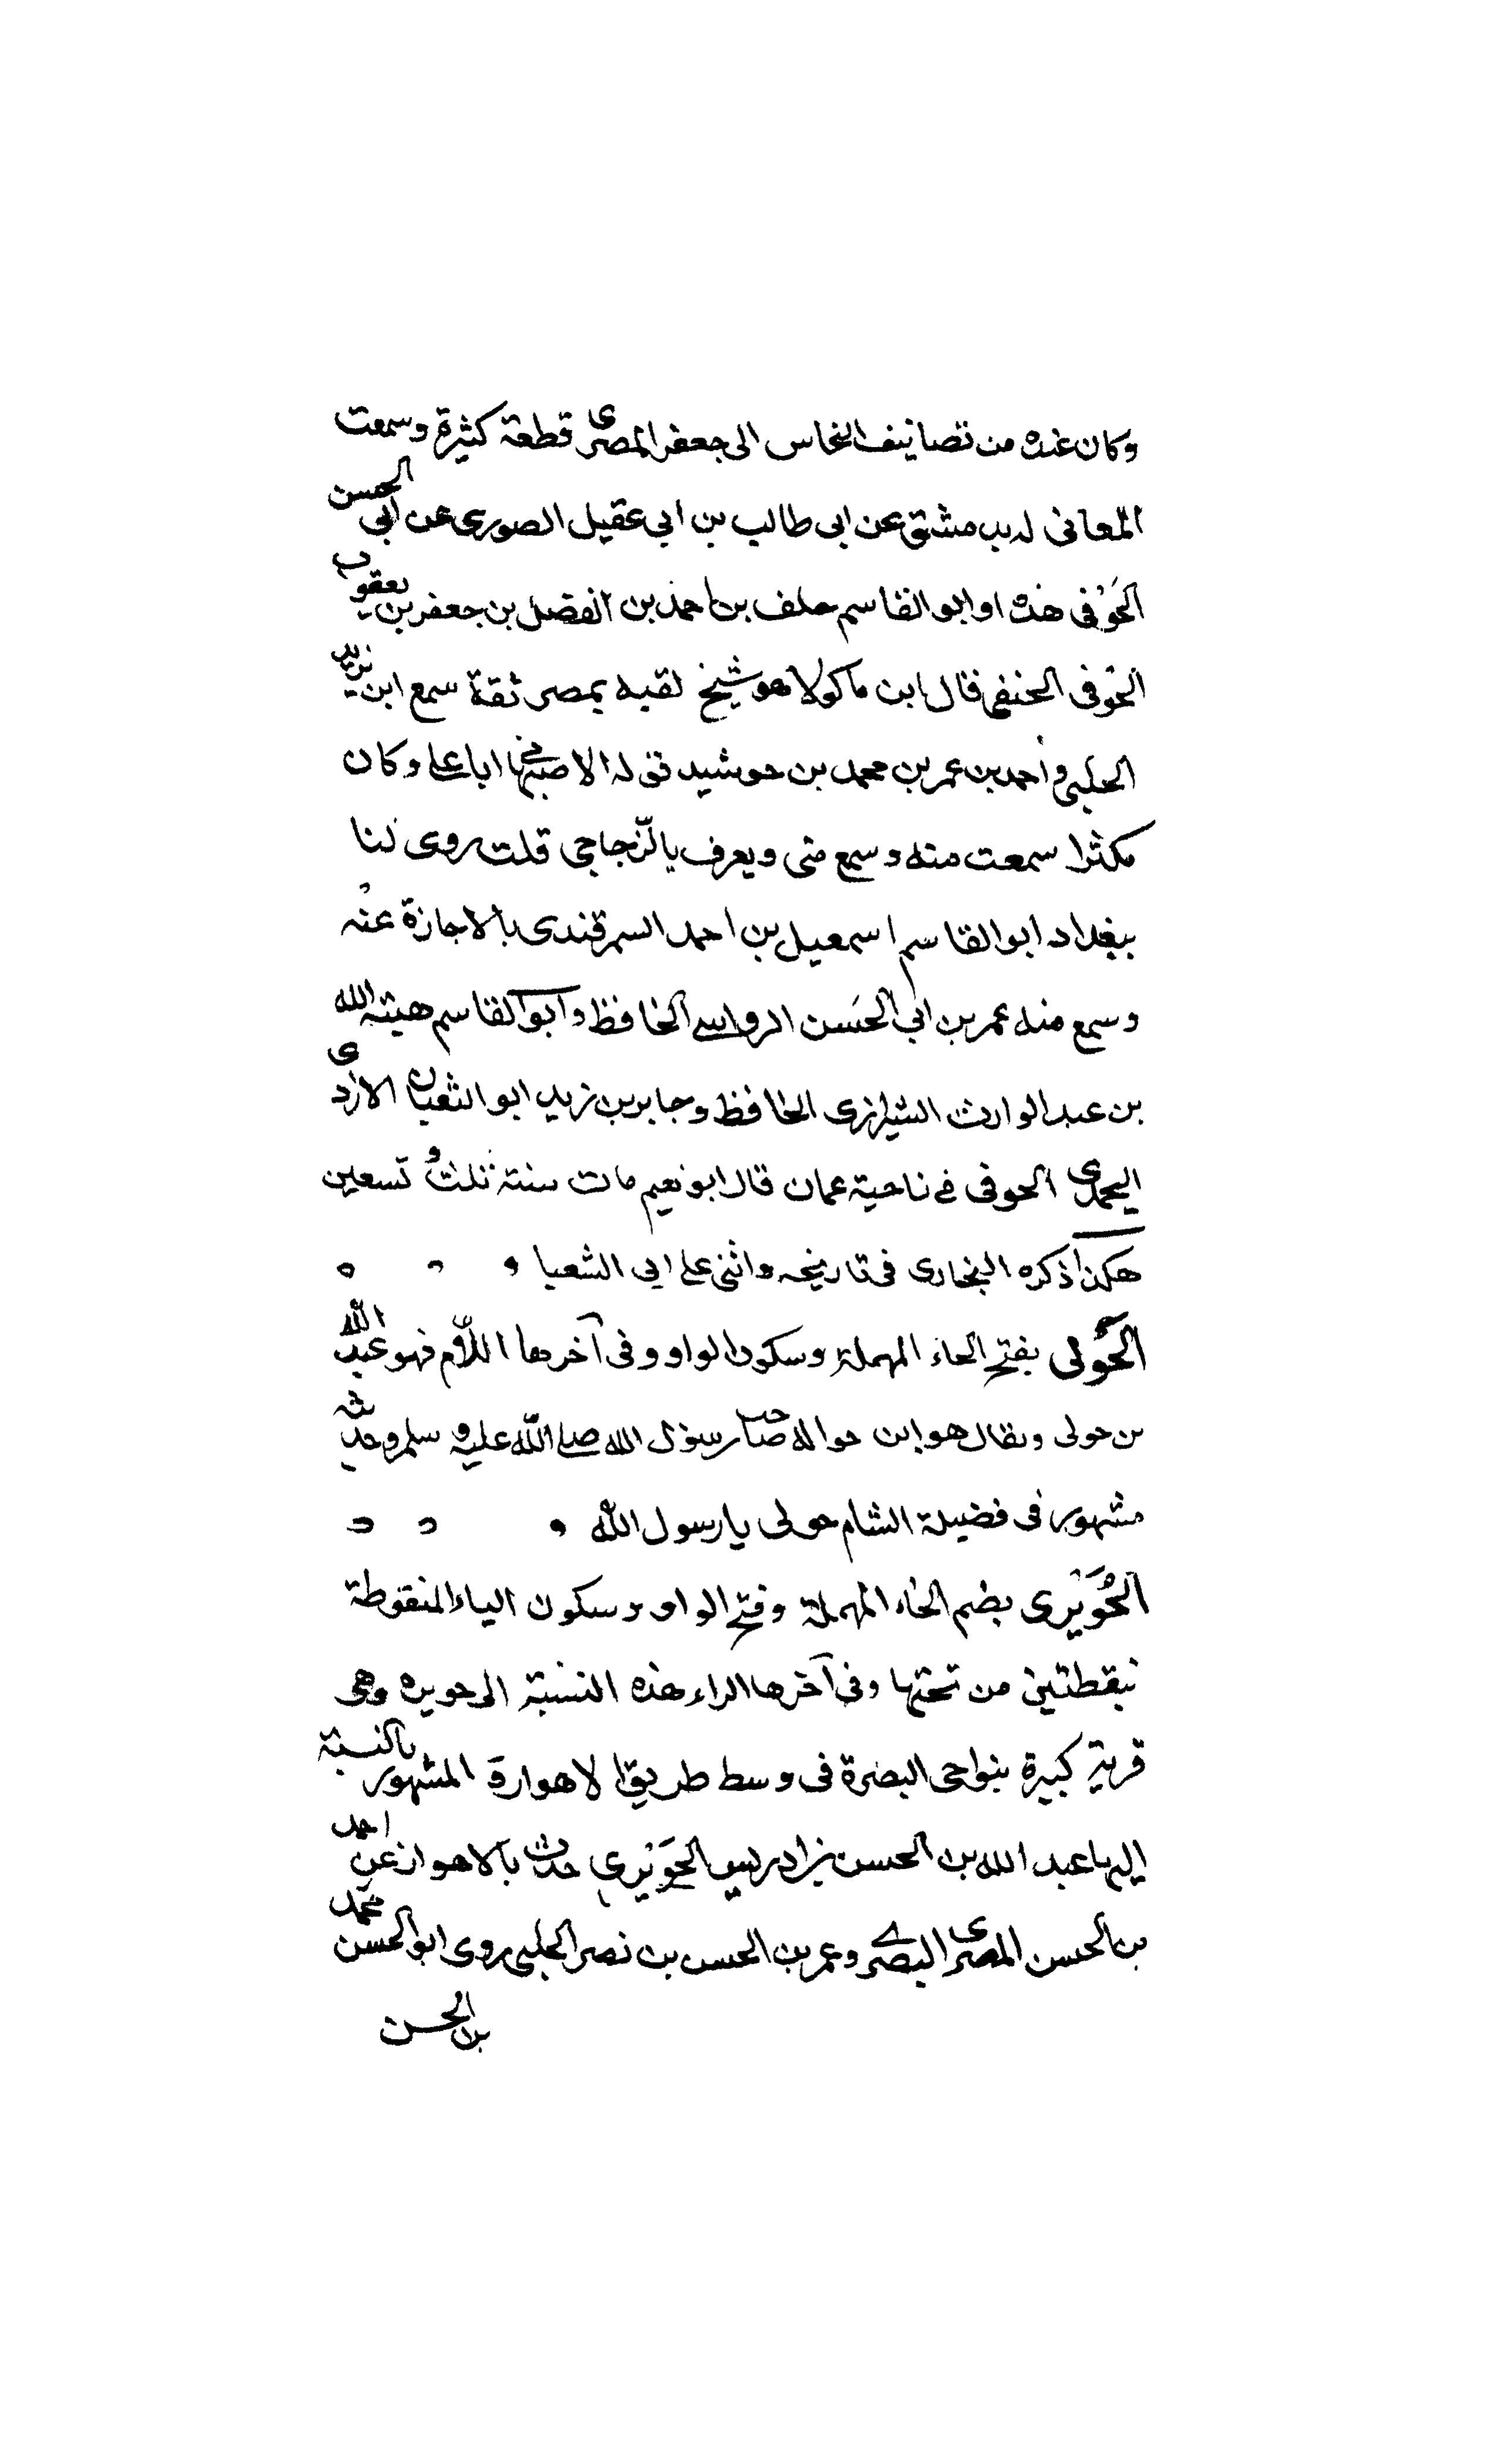 وكان عنده من تصانيف النحاس الى جعفر المصرى قطعة كثيرة وسمعت
المعانى له بدمشق عن ابى طالب بن ابي عقيل الصورى عن ابى الحسن
الحَوْفى هذه او ابو القاسم خلف بن احمد بن الفضل بن جعفر بن يعقوب
الحوفى الحنفى قال ابن ماكولا هو شيخ لقيه بمصر ثقة سمع ابن يزيد
الحلبى و احمد بن عمر بن محمد بن خوشيد قوله الاصبهانى ابا على وكان
مكثرا سمعت منه وسمع منى ويعرف بالزّجاجى قلت روى لنا
ببغداد ابو القاسم اسمعيل بن احمد السمرقندى بالاجازة عنه
وسمع منه عمر بن ابي الحَسَن الرواسى الحافظ و ابو القاسم هبة الله
بن عبد الوارث الشيرازى الحافظ وجابر بن زيد ابو الشعبان الازدى
اليحمدى الحوفى فى ناحية عمان قال ابو نعيم مات سنة ثلث و تسعين
هكذا ذكره البخارى فى تاريخه واثنى على ابى الشعبا
الحَوْلى بفتح الحاء المهملة وسكون الواو وفى آخرها اللّام فهو عبد الله
بن حولى ويقال هو ابن حوالة صاحب رسول الله صلى الله عليه و سلم وحديثه
مشهور فى فضيلة الشام حولى يا رسول الله
الحُوَيْرى بضم الحاء المهملة وفتح الواو وسكون الياء المنقوطة
بنقطتين من تحتها وفى آخرها الراء هذه النسبة الى حويره وهى
قرية كبيرة بنواحى البصرة فى وسط طريق الاهوارة المشهور بالنسبة
اليها عبد الله بن الحسن بن ادريس الحوَيْرى حدث بالاهواز عن احمد
بن الحسن المصرى البصرى وعمر بن الحسن بن نصر الحلبى روى ابو الحسن محمد
بن الحسن